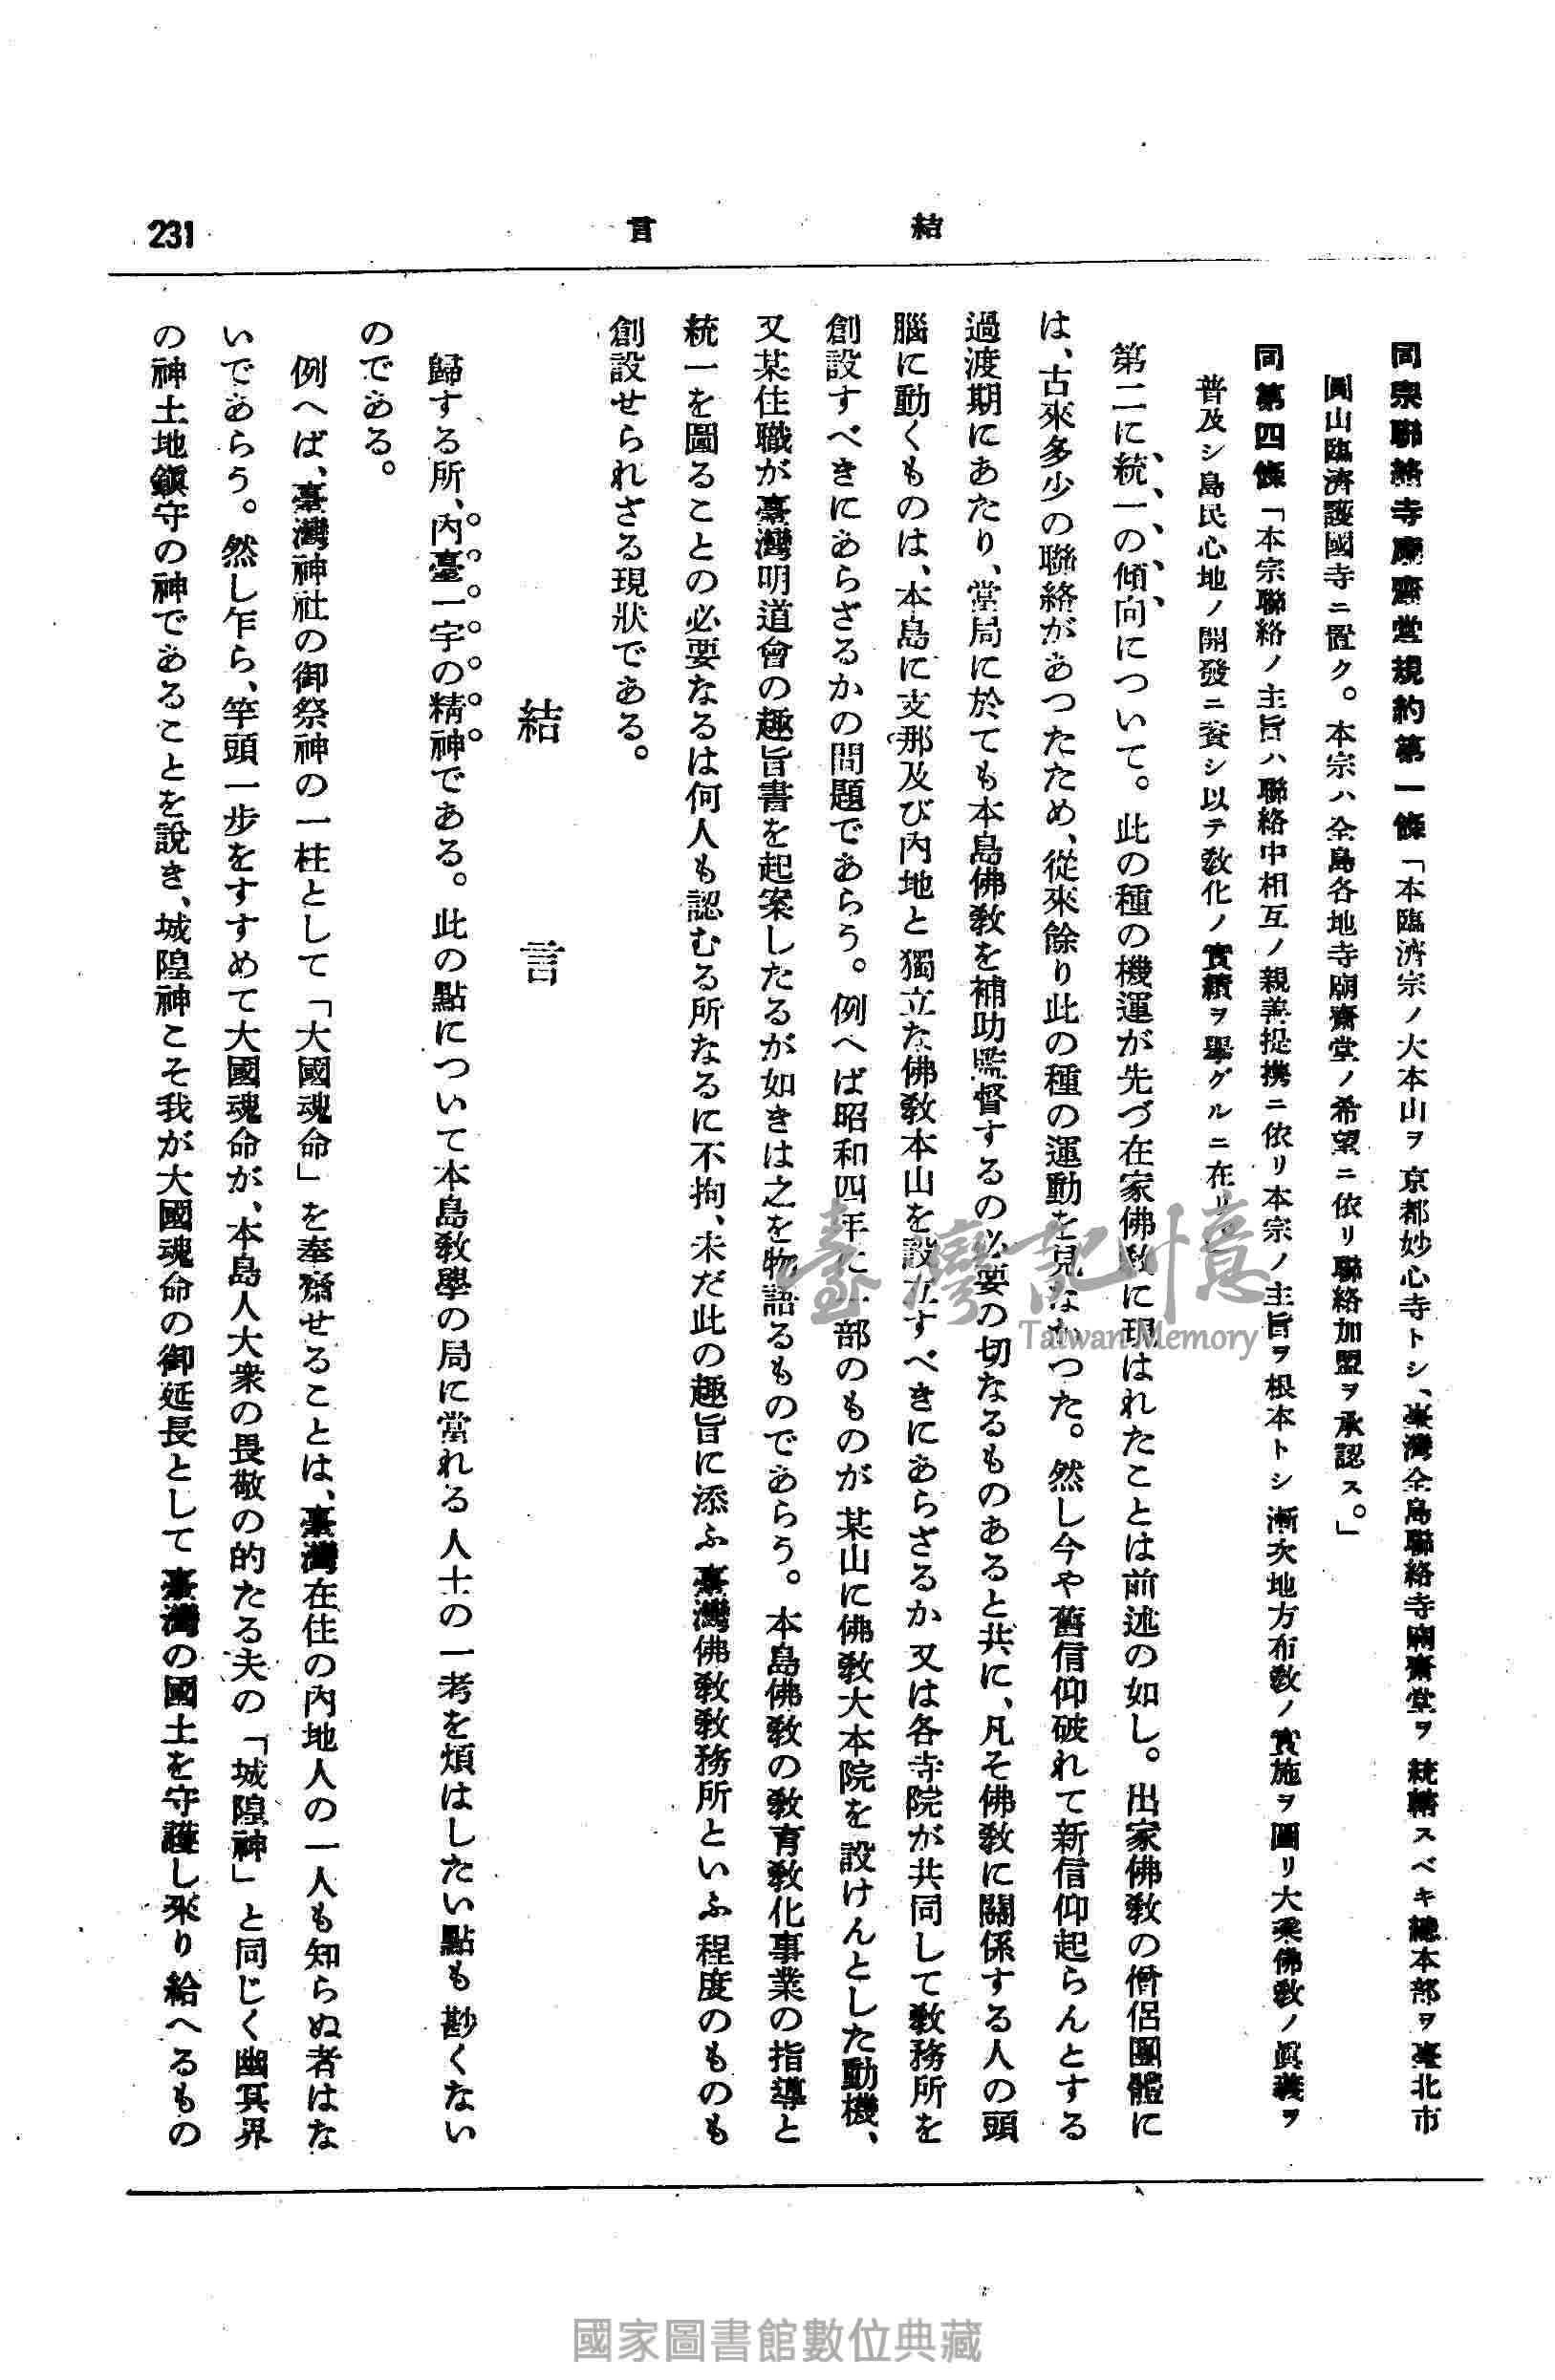 結言
231
同宗聯絡寺廟齋堂規約第一條「本臨濟宗ノ大本山ヲ京都妙心寺トシ、臺灣全島聯絡寺廟齋堂ヲ統轄スベキ總本部ヲ臺北市
圓山臨濟護國寺ニ置ク。本宗ハ全島各地寺廟齋堂ノ希望ニ依リ聯絡加盟ヲ承認ス。」
同第四條「本宗聯絡ノ主旨ハ聯絡中相互ノ親善提携ニ依リ本宗ノ主旨ヲ根本トシ漸次地方布敎ノ實施ヲ圖リ大乘佛敎ノ眞義ヲ
普及シ島民心地ノ開發ニ資シ以テ敎化ノ實績ヲ擧グルニ在リ。
第二に統一の傾向について。此の種の機運が先づ在家佛敎に現はれたことは前述の如し。出家佛敎の僧侶團體に
は、古來多少の聯絡があつたため、從來餘り此の種の運動を見なかつた。然し今や舊信仰破れて新信仰起らんとする
過渡期にあたり、當局に於ても本島佛敎を補助監督するの必要の切なるものあると共に、凡そ佛敎に關係する人の頭
腦に動くものは、本島に支那及び內地と獨立な佛敎本山を設立すべきにあらざるか又は各寺院が共同して敎務所を
創設すべきにあらざるかの問題であらう。例へば昭和四年に一部のものが某山に佛敎大本院を設けんとした動機、
又某住職が臺灣明道會の趣旨書を起案したるが如きは之を物語るものであらう。本島佛敎の敎育敎化事業の指導と
統一を圖ることの必要なるは何人も認むる所なるに不拘、未だ此の趣旨に添ふ臺灣佛敎敎務所といふ程度のものも
創設せられざる現狀である。
結言
歸する所、內臺一宇の精神である。此の點について本島敎學の局に當れる人士の一考を煩はしたい點も尠くない
のである。
例へば、臺灣神社の御祭神の一柱として「大國魂命」を奉齋せることは、臺灣在住の內地人の一人も知らぬ者はな
いであらう。然し乍ら、竿頭一步をすすめて大國魂命が、本島人大衆の畏敬の的たる夫の「城隍神」と同じく幽冥界
の神土地鎭守の神であることを說き、城隍神こそ我が大國魂命の御延長として臺灣の國土を守護し來り給へるもの
臺灣記憶
Taiwan Memory
國家圖書館數位典藏